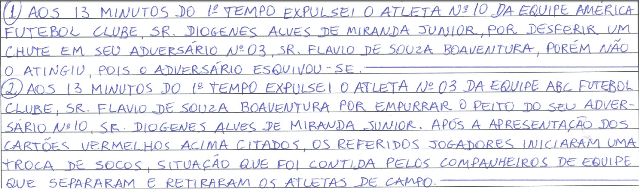 ① AOS 13 MINUTOS DO 1º TEMPO EXPULSEI O ATLETA Nº 10 DA EQUIPE AMÉRICA
FUTEBOL CLUBE, SR. DIOGENES ALVES DE MIRANDA JUNIOR, POR DESFERIR UM
CHUTE EM SEU ADVERSÁRIO Nº 03, SR. FLAVIO DE SOUZA BOAVENTURA, PORÉM NÃO
O ATINGIU, POIS O ADVERSÁRIO ESQUIVOU-SE.
② AOS 13 MINUTOS DO 1º TEMPO EXPULSEI O ATLETA Nº 03 DA EQUIPE ABC FUTEBOL
CLUBE, SR. FLAVIO DE SOUZA BOAVENTURA POR EMPURRAR O PEITO DO SEU ADVER-
SÁRIO Nº 10, SR. DIOGENES ALVES DE MIRANDA JUNIOR. APÓS A APRESENTAÇÃO DOS
CARTÕES VERMELHOS ACIMA CITADOS, OS REFERIDOS JOGADORES INICIARAM UMA
TROCA DE SOCOS, SITUAÇÃO QUE FOI CONTIDA PELOS COMPANHEIROS DE EQUIPE
QUE SEPARARAM E RETIRARAM OS ATLETAS DE CAMPO.